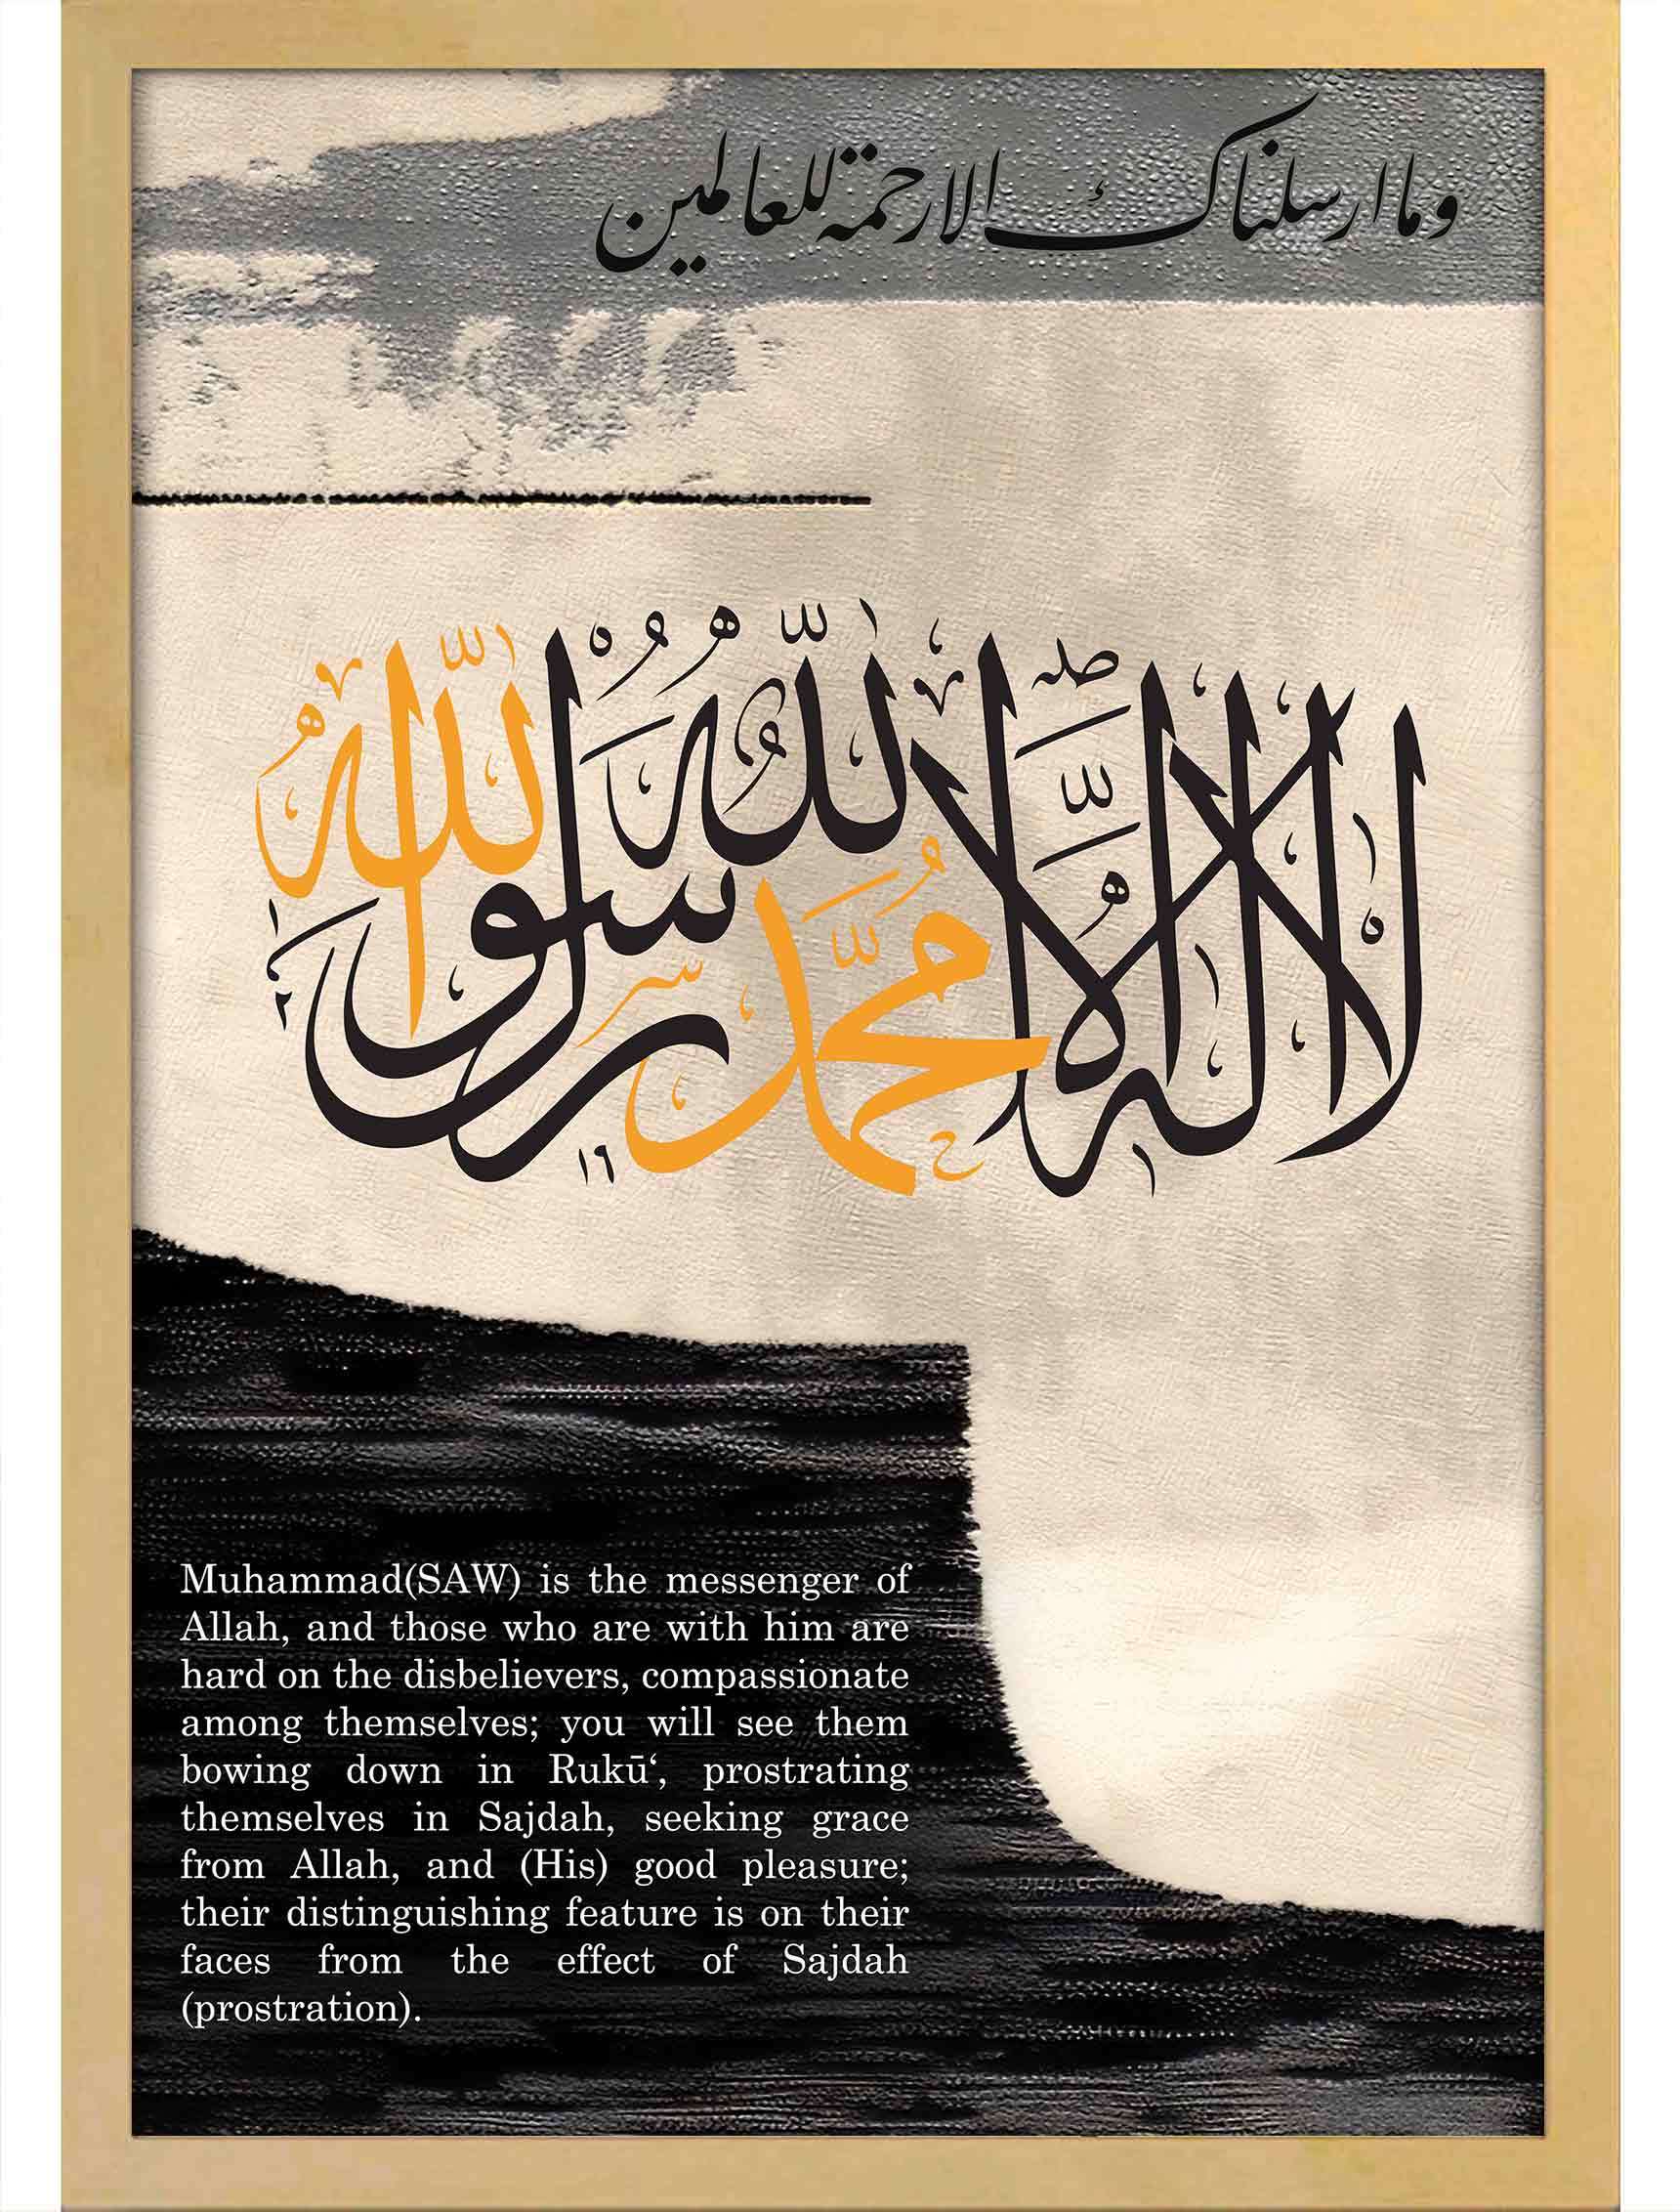 وما ارسلناک الا رحمة للعالمين
لا اله الا الله محمد رسول الله
١٢
١٩
Muhammad(SAW) is the messenger of
Allah, and those who are with him are
hard on the disbelievers, compassionate
among themselves; you will see them
bowing down in Rukū‘, prostrating
themselves in Sajdah, seeking grace
from Allah, and (His) good pleasure;
their distinguishing feature is on their
faces from the effect of Sajdah
(prostration).